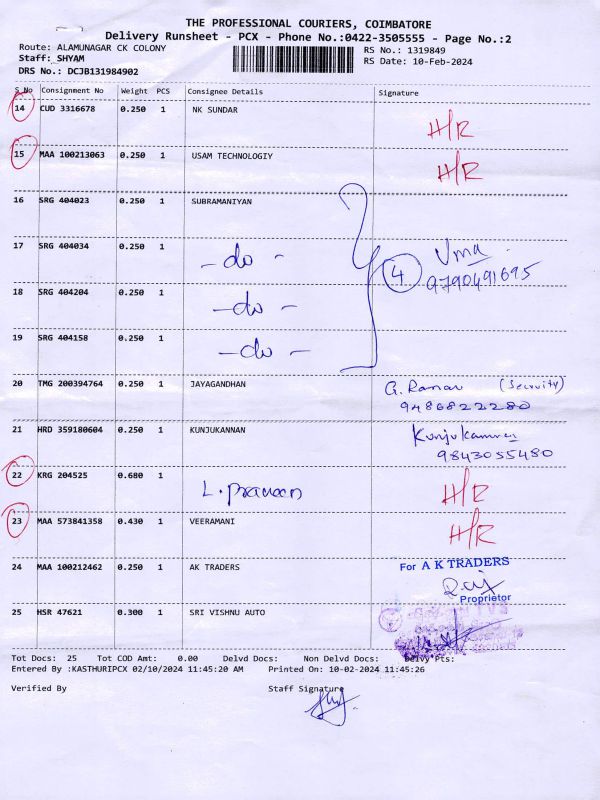 THE PROFESSIONAL COURIERS, COIMBATORE
Delivery Runsheet - PCX - Phone No.:0422-3505555 - Page No.:2
Route: ALAMUNAGAR CK COLONY RS No.: 1319849
Staff: SHYAM RS Date: 10-Feb-2024
DRS No.: DCJB131984902
S No Consignment No Weight PCS Consignee Details Signature
14 CUD 3316678 0.250 1 NK SUNDAR H/R
15 MAA 100213063 0.250 1 USAM TECHNOLOGIY H/R
16 SRG 404023 0.250 1 SUBRAMANIYAN
17 SRG 404034 0.250 1 - do - 4 Uma
9790491695
18 SRG 404204 0.250 1 - do -
19 SRG 404158 0.250 1 - do -
20 TMG 200394764 0.250 1 JAYAGANDHAN G. Raman (Security)
9486822280
21 HRD 359180604 0.250 1 KUNJUKANNAN Kunjukannan
9843055480
22 KRG 204525 0.680 1 L. Praveen H/R
23 MAA 573841358 0.430 1 VEERAMANI H/R
24 MAA 100212462 0.250 1 AK TRADERS For A K TRADERS
Proprietor
25 HSR 47621 0.300 1 SRI VISHNU AUTO
Tot Docs: 25 Tot COD Amt: 0.00 Delvd Docs: Non Delvd Docs: Delvy Pts:
Entered By :KASTHURIPCX 02/10/2024 11:45:20 AM Printed On: 10-02-2024 11:45:26
Verified By Staff Signature